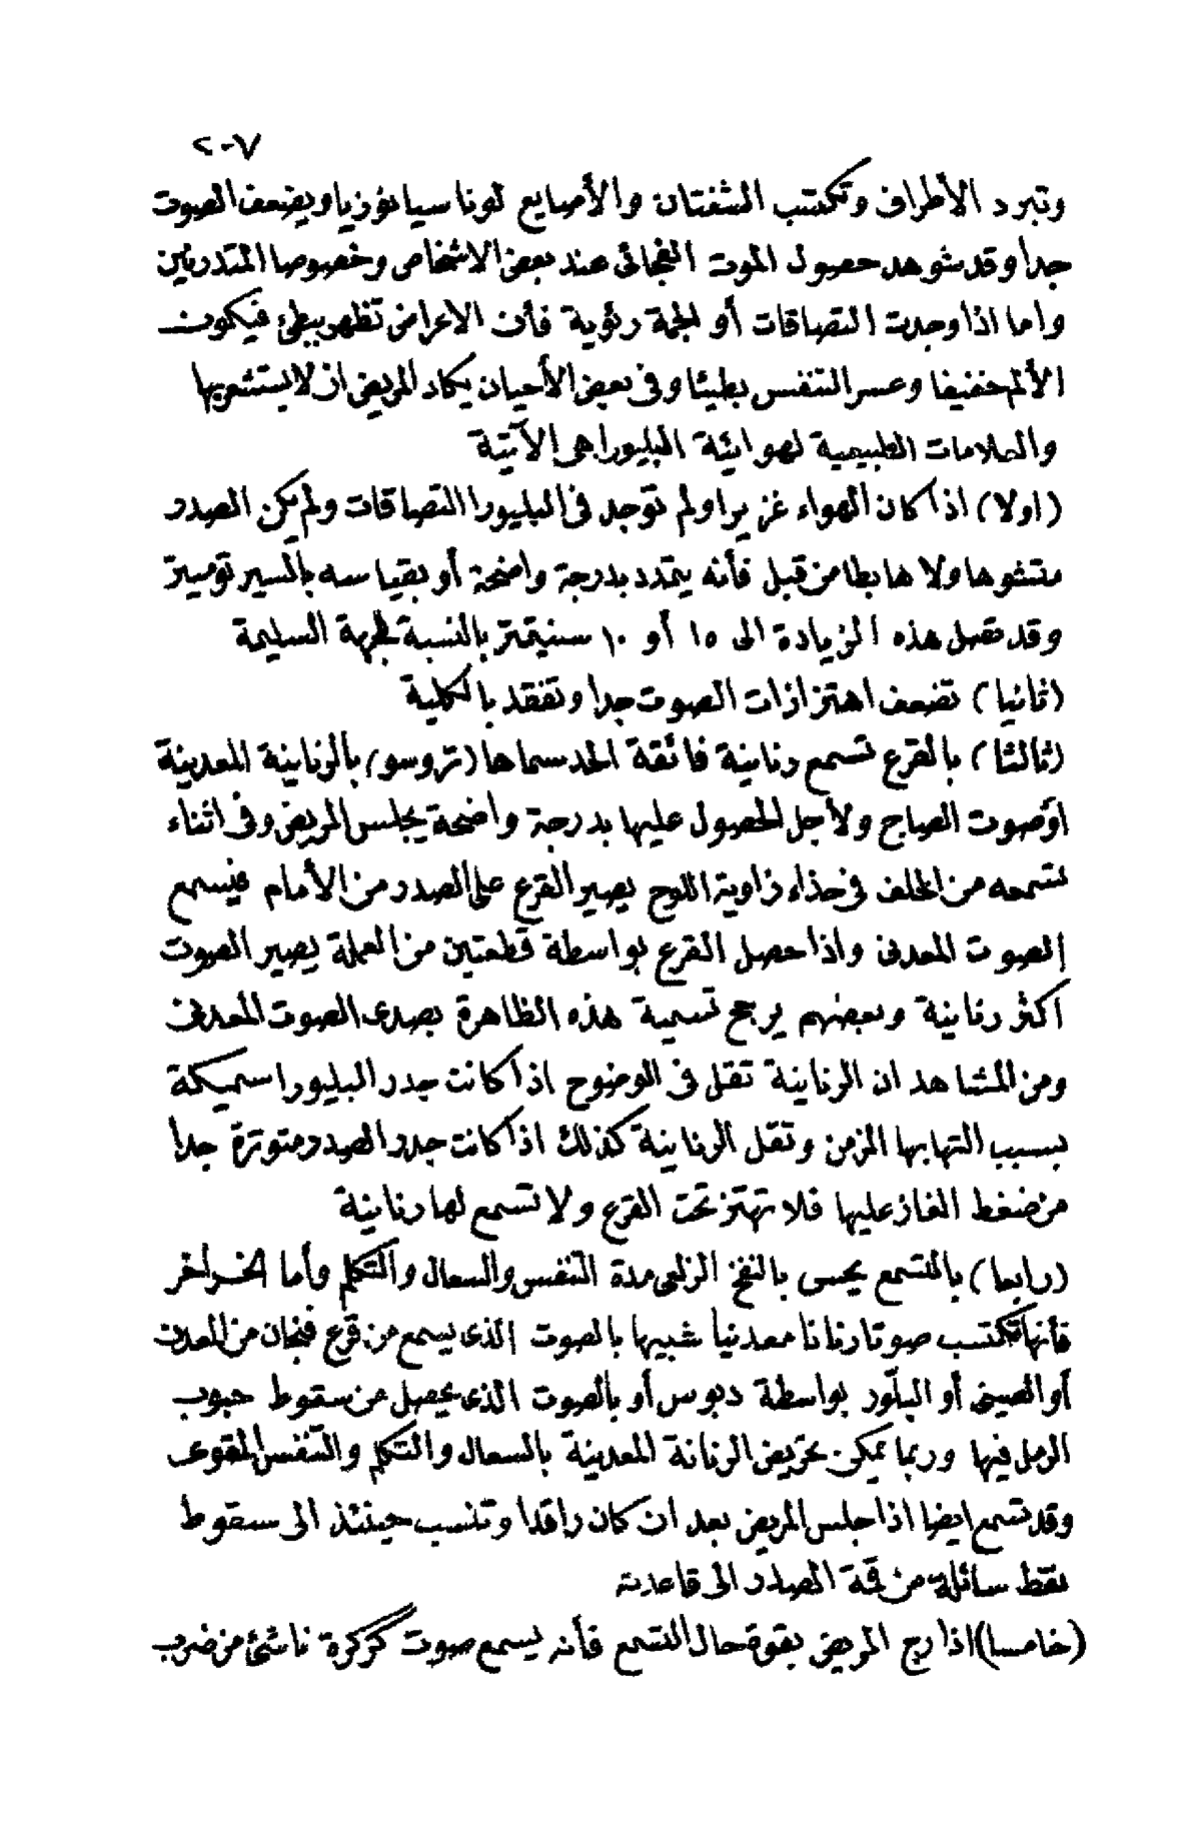 ٢٠٧
وتبرد الأطراف وتكتسب الشفتان والأصابع لونا سيانوزيا ويضعف الصوت
جدا وقد شوهد حصول الموت الفجائى عند بعض الاشخاص وخصوصا المتدرنين
واما اذا وجدت التصاقات أو لجمة رئوية فأن الاعراض تظهر ببطئ فيكون
الألم خفيفا وعسر التنفس بطيئا وفى بعض الأحيان يكاد المريض ان لا يستشعر بها
والعلامات الطبيعية لهوائية البليورا هى الآتية
(اولا) اذا كان الهواء غزيرا ولم توجد فى البليورا التصاقات ولم يكن الصدر
متشوها ولا هابطا من قبل فأنه يتمدد بدرجة واضحة أو بقياسه بالسيرتوميتر
وقد تصل هذه الزيادة الى ١٥ أو ١٠ سنتيمتر بالنسبة لجهة السليمة
(ثانيا) تضعف اهتزازات الصوت جدا وتفقد بالكلية
(ثالثا) بالقرع تسمع رنانية فائقة الحد سماها (تروسو) بالرنانية المعدنية
اوصوت الصياح ولأجل الحصول عليها بدرجة واضحة يجلس المريض وفى اثناء
تسمعه من الخلف فى حذاء زاوية اللوح يصير القرع على الصدر من الأمام فيسمع
الصوت المعدنى واذا حصل القرع بواسطة قطعتين من العملة يصير الصوت
اكثر رنانية وبعضهم يرجح تسمية هذه الظاهرة بصدى الصوت المعدنى
ومن المشاهد ان الرنانية تقل فى الوضوح اذا كانت جدر البليورا سميكة
بسبب التهابها المزمن وتقل الرنانية كذلك اذا كانت جدر الصدر متوترة جدا
من ضغط الغاز عليها فلا تهتز تحت القرع ولا تسمع لها رنانية
(رابعا) بالتسمع يحس بالنفخ الزلعى مدة التنفس والسعال والتكلم وأما الخراخر
فأنها تكتسب صوتا رنانا معدنيا شبيها بالصوت الذى يسمع من قرع فنجان من المعدن
أو الصينى أو البلّور بواسطة دبوس أو بالصوت الذى يحصل من سقوط حبوب
الرمل فيها وربما يمكن تحريض الرنانة المعدنية بالسعال والتكلم والتنفس المقوى
وقد تسمع ايضا اذا جلس المريض بعد ان كان راقدا وتنسب حينئذ الى سقوط
نقط سائلة من قمة الصدر الى قاعدته
(خامسا) اذا رج المريض بقوة حال التسمع فأنه يسمع صوت كركرة ناشئ من ضرب